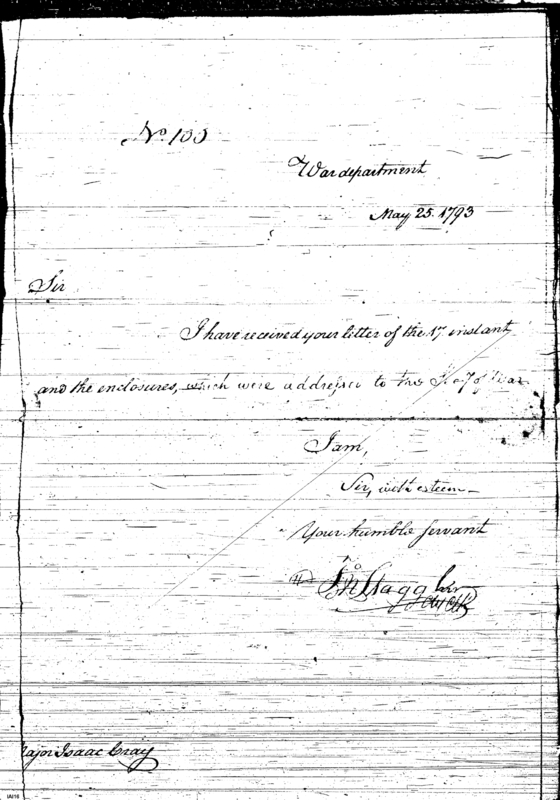 No. 100
War department
May 25. 1793
Sir
I have received your letter of the 17. instant
and the enclosures, which were addressed to the Sec.y of War
I am,
Sir, with esteem
Your humble servant
Jno Stagg Junr
Major Isaac Craig